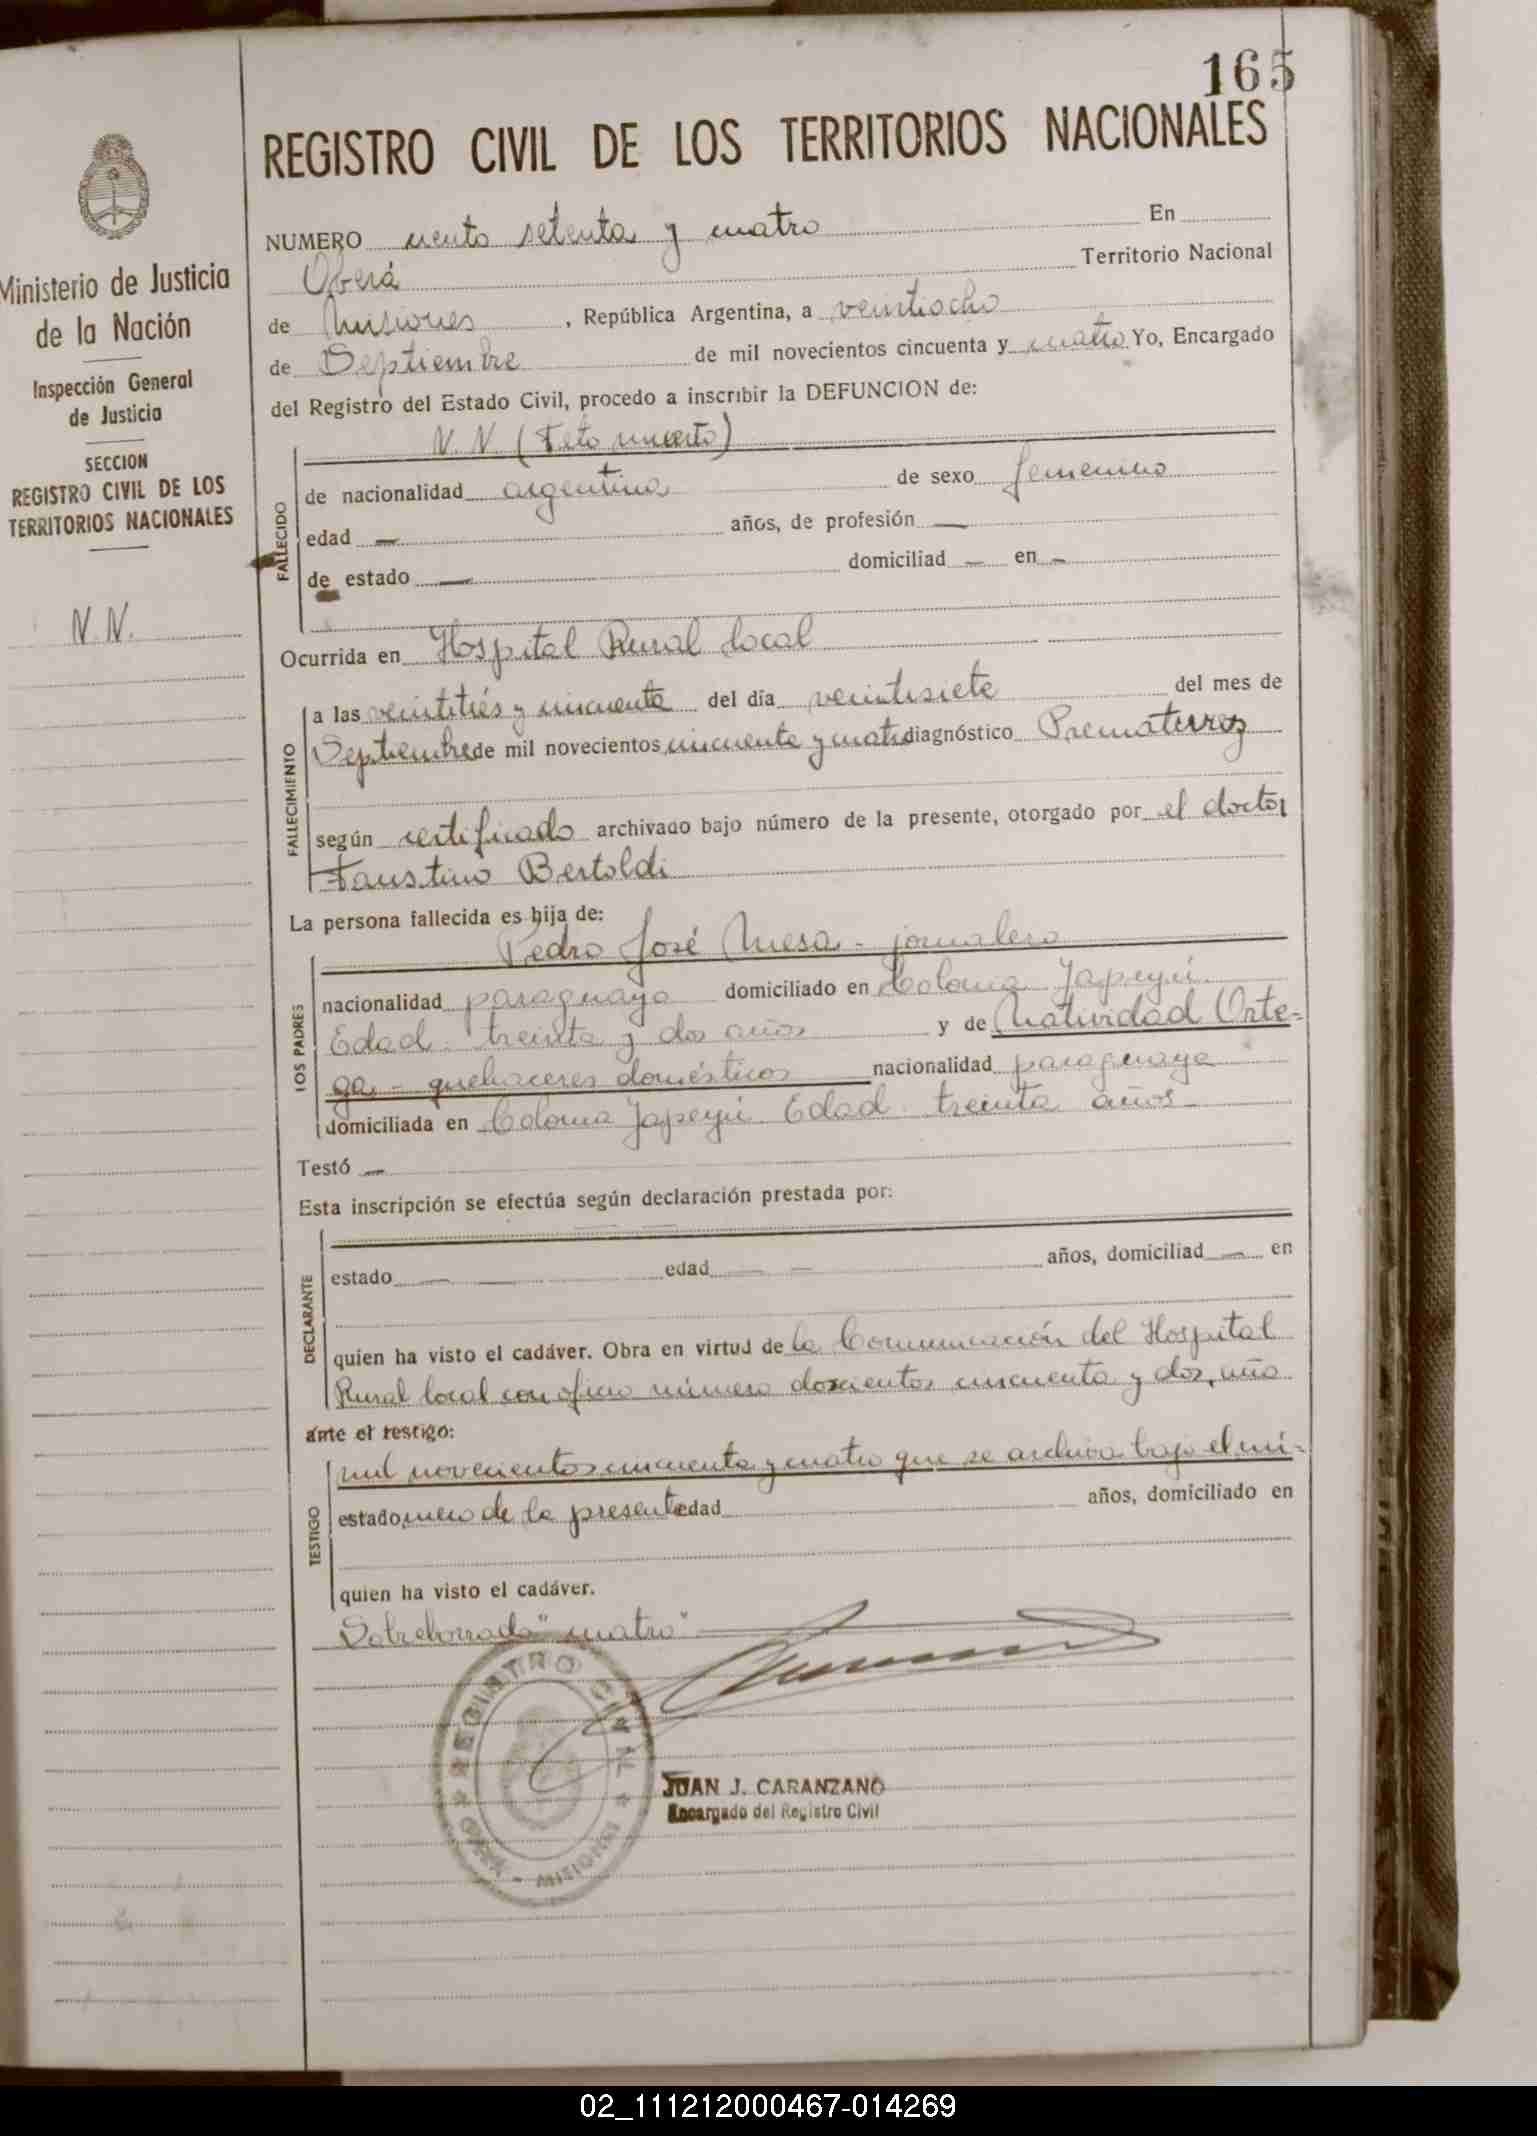 165
REGISTRO CIVIL DE LOS TERRITORIOS NACIONALES
Ministerio de Justicia
de la Nación
Inspección General
de Justicia
SECCION
REGISTRO CIVIL DE LOS
TERRITORIOS NACIONALES
N.N.
NUMERO ciento setenta y cuatro En
Oberá Territorio Nacional
de Misiones, República Argentina, a veintiocho
de Septiembre de mil novecientos cincuenta y cuatro Yo, Encargado
del Registro del Estado Civil, procedo a inscribir la DEFUNCION de:
FALLECIDO
N.N. (Feto muerto)
de nacionalidad argentina de sexo femenino
edad — años, de profesión —
de estado — domiciliad — en —
Ocurrida en Hospital Rural local
FALLECIMIENTO
a las veintitrés y cincuenta del día veintisiete del mes de
Septiembre de mil novecientos cincuenta y cuatro diagnóstico Prematurez
según certificado archivado bajo número de la presente, otorgado por el doctor
Faustino Bertoldi
La persona fallecida es hija de:
LOS PADRES
Pedro José Mesa - jornalero
nacionalidad paraguaya domiciliado en Colonia Japeyú.
Edad. treinta y dos años y de Natividad Orte=
ga - quehaceres domésticos nacionalidad paraguaya
domiciliada en Colonia Japeyú. Edad. treinta años -
Testó —
Esta inscripción se efectúa según declaración prestada por:
DECLARANTE
estado — — edad — — años, domiciliad — en
quien ha visto el cadáver. Obra en virtud de la Comunicación del Hospital
Rural local con oficio número doscientos cincuenta y dos, año
ante el testigo:
TESTIGO
mil novecientos cincuenta y cuatro que se archiva bajo el nú=
estado mero de la presente edad años, domiciliado en
quien ha visto el cadáver.
Sobreborrado "cuatro"
REGISTRO CIVIL
OBERA - MISIONES
JUAN J. CARANZANO
Encargado del Registro Civil
02_111212000467-014269